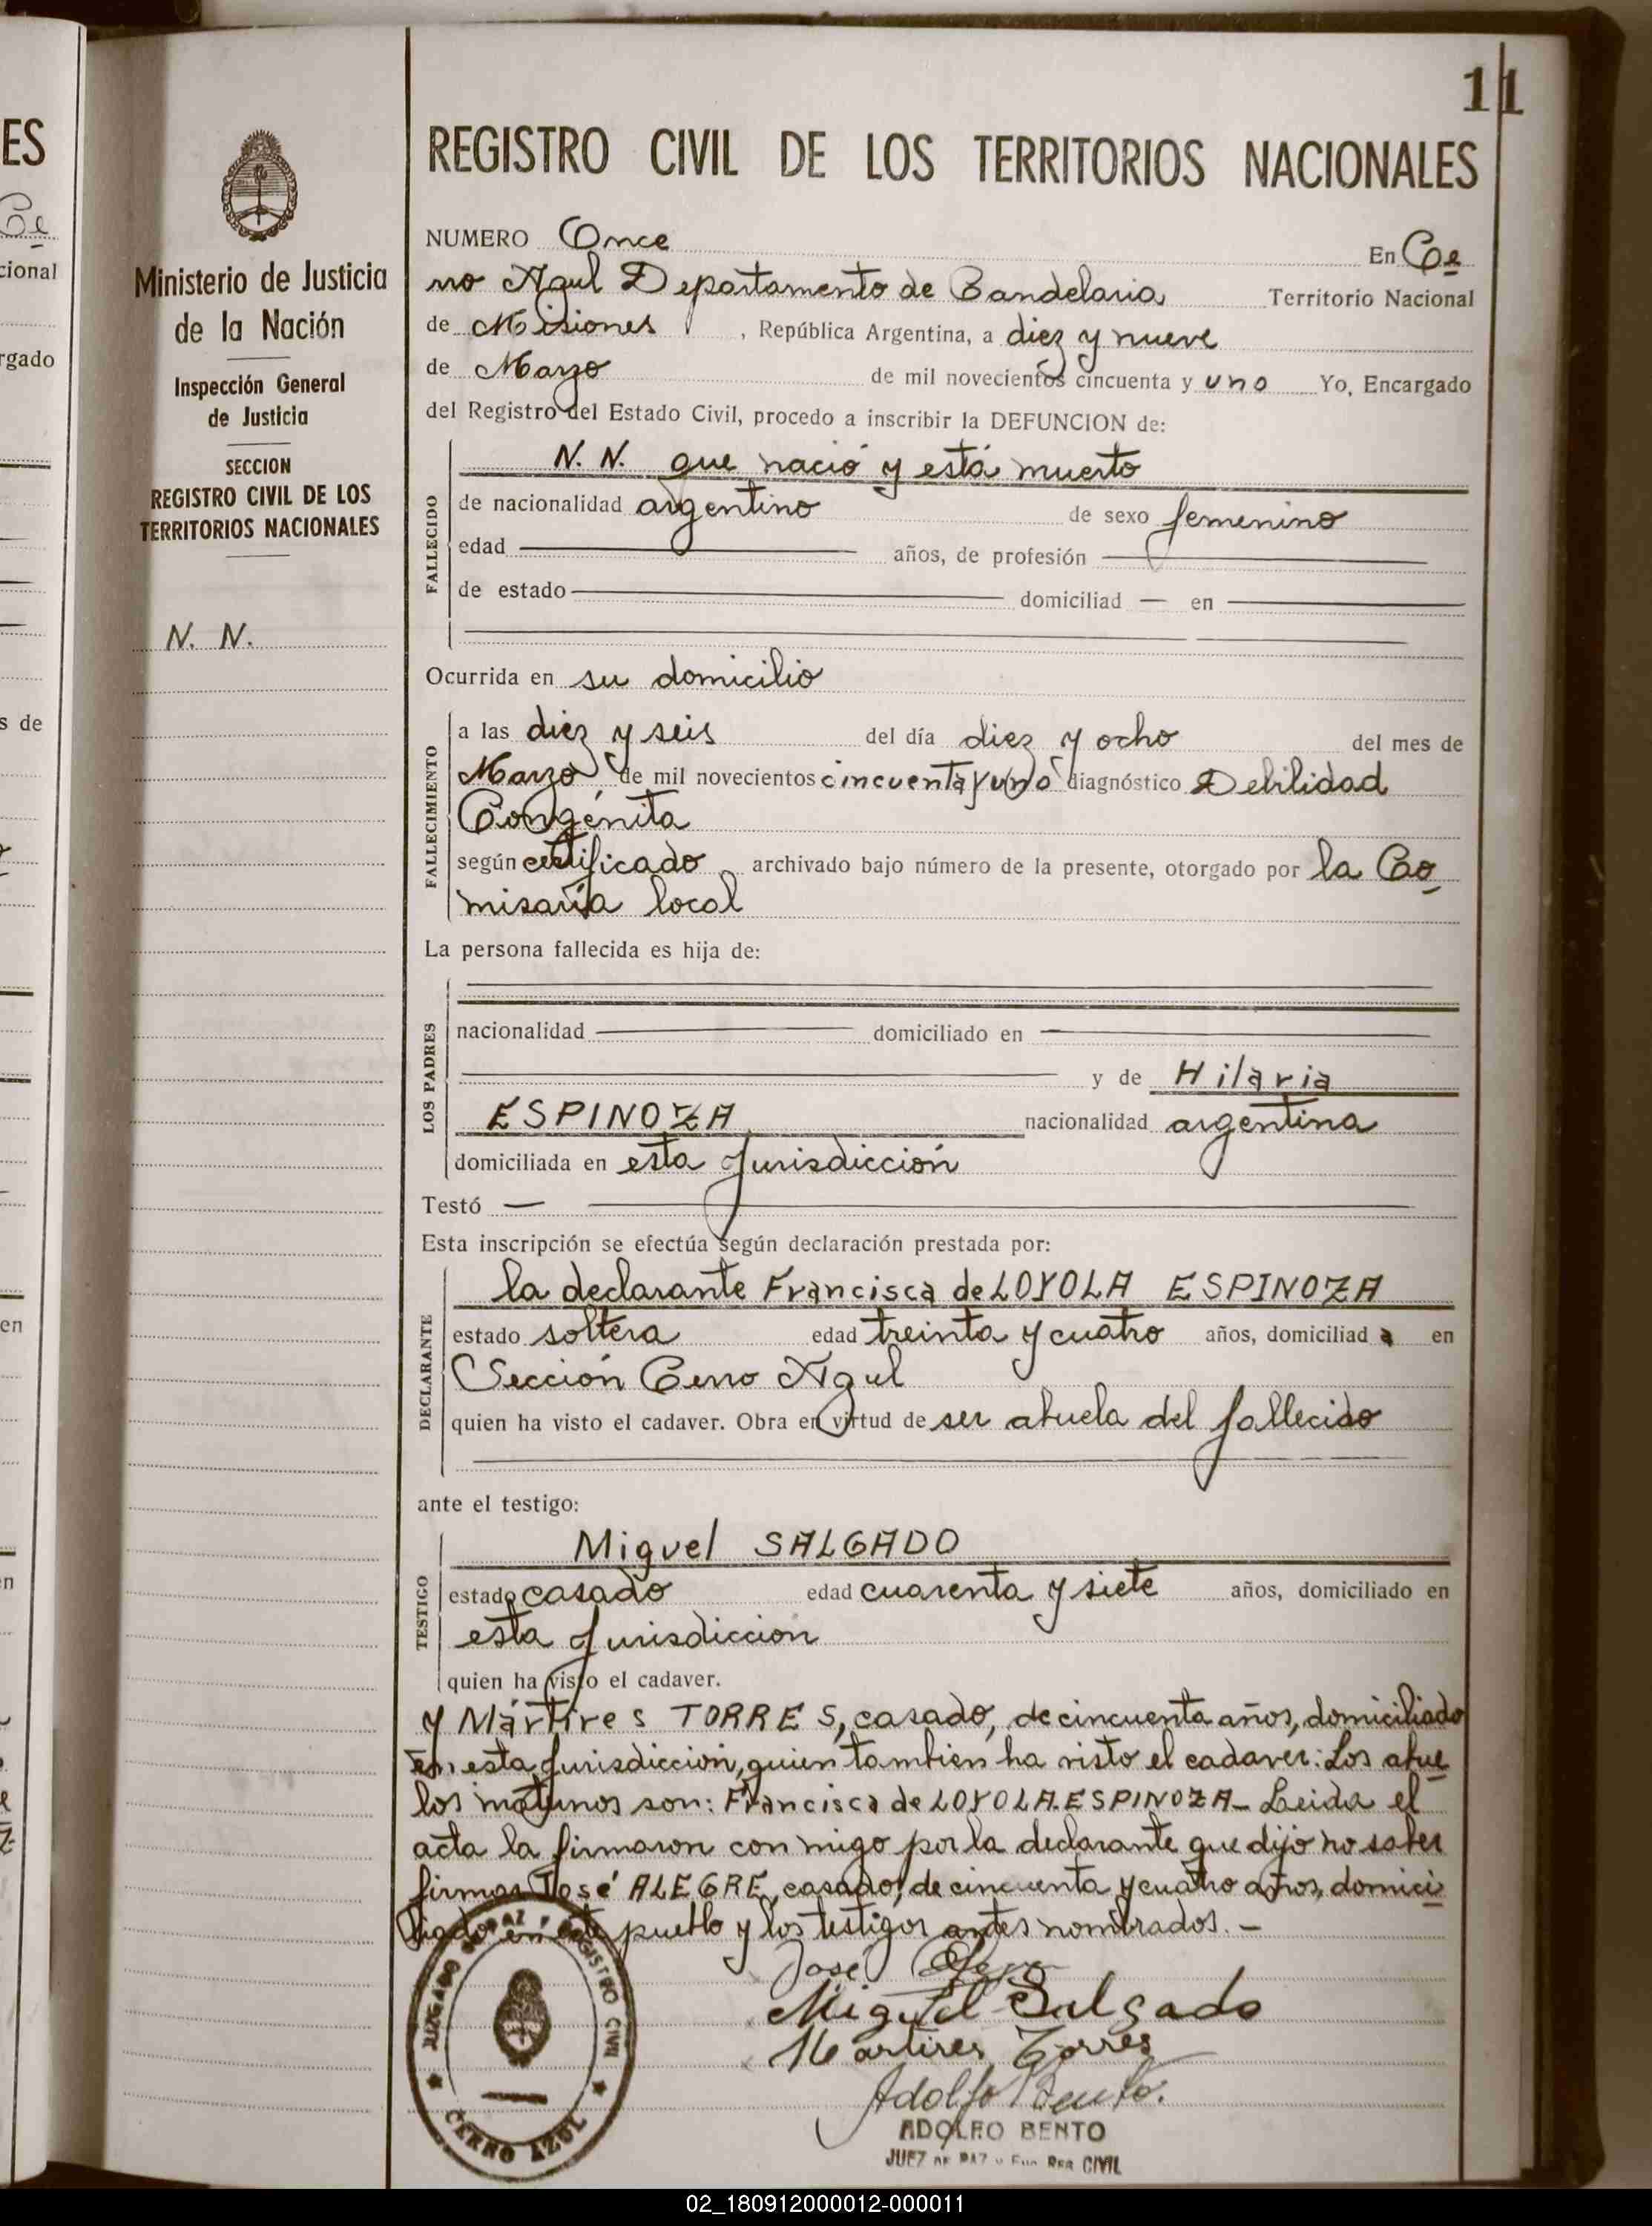 11
REGISTRO CIVIL DE LOS TERRITORIOS NACIONALES
ES
Ce
cional
rgado
s de
en
Ministerio de Justicia
de la Nación
Inspección General
de Justicia
SECCION
REGISTRO CIVIL DE LOS
TERRITORIOS NACIONALES
N. N.
NUMERO Once En Ce
rro Azul Departamento de Candelaria Territorio Nacional
de Misiones, República Argentina, a diez y nueve
de Marzo de mil novecientos cincuenta y uno Yo, Encargado
del Registro del Estado Civil, procedo a inscribir la DEFUNCION de:
FALLECIDO
N. N. que nació y está muerto
de nacionalidad argentino de sexo femenino
edad — años, de profesión —
de estado — domiciliad — en —
Ocurrida en su domicilio
FALLECIMIENTO
a las diez y seis del día diez y ocho del mes de
Marzo de mil novecientos cincuenta y uno diagnóstico Debilidad
Congénita
según certificado archivado bajo número de la presente, otorgado por la Co
misaría local
La persona fallecida es hija de:
LOS PADRES
nacionalidad — domiciliado en —
— y de Hilaria
ESPINOZA nacionalidad argentina
domiciliada en esta Jurisdicción
Testó —
Esta inscripción se efectúa según declaración prestada por:
DECLARANTE
la declarante Francisca de LOYOLA ESPINOZA
estado soltera edad treinta y cuatro años, domiciliad a en
Sección Cerro Azul
quien ha visto el cadaver. Obra en virtud de ser abuela del fallecido
ante el testigo:
TESTIGO
Miguel SALGADO
estado casado edad cuarenta y siete años, domiciliado en
esta Jurisdiccion
quien ha visto el cadaver.
y Mártires TORRES, casado, de cincuenta años, domiciliado
en esta Jurisdicción, quien tambien ha visto el cadaver: Los abue
los maternos son: Francisca de LOYOLA ESPINOZA- Leida el
acta la firmaron con migo por la declarante que dijo no saber
firmar José ALEGRE, casado, de cincuenta y cuatro años, domici
liado en este pueblo y los testigos antes nombrados. -
José
Miguel Salgado
Martires Torres
Adolfo Bento.
ADOLFO BENTO
JUEZ DE PAZ y Enc Reg CIVIL
JUZGADO DE PAZ Y REGISTRO CIVIL
CERRO AZUL
02_180912000012-000011